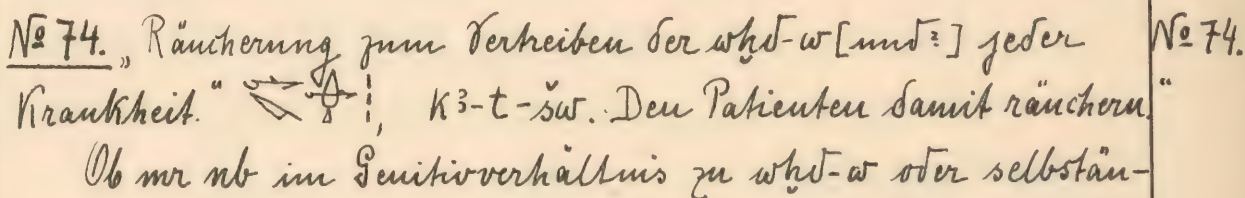 № 74. „Räucherung zum Vertreiben der wḫd-w [und?] jeder № 74.
Krankheit.“ K³-t-šw. Den Patienten damit räuchern.“
Ob mr nb im Genitivverhältnis zu wḫd-w oder selbstän-